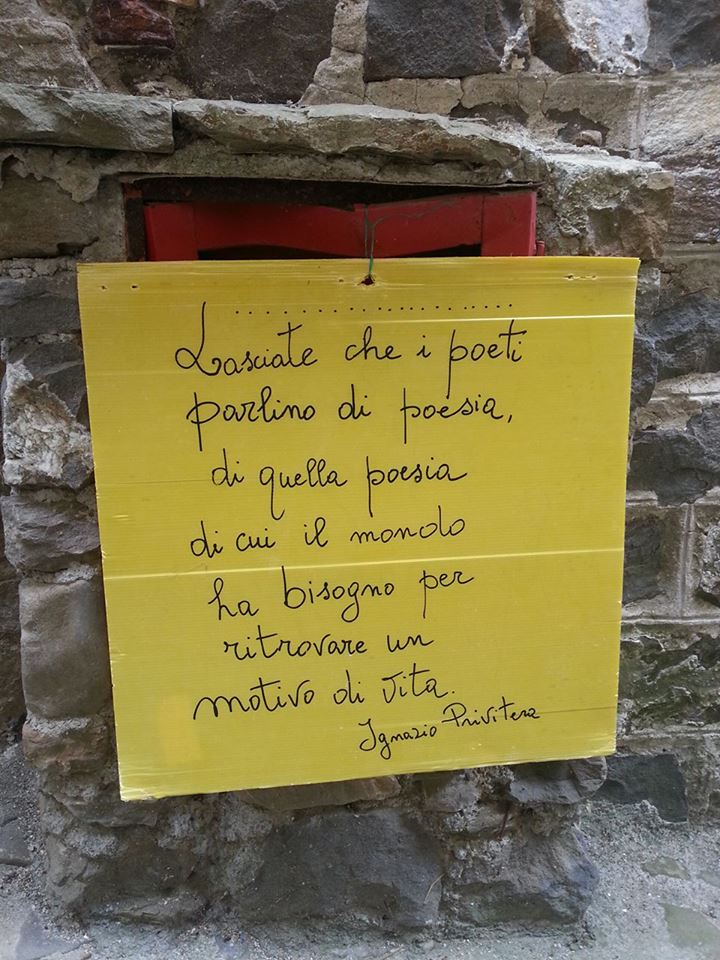 ....................
Lasciate che i poeti
parlino di poesia,
di quella poesia
di cui il mondo
ha bisogno per
ritrovare un
motivo di vita.
Ignazio Privitera